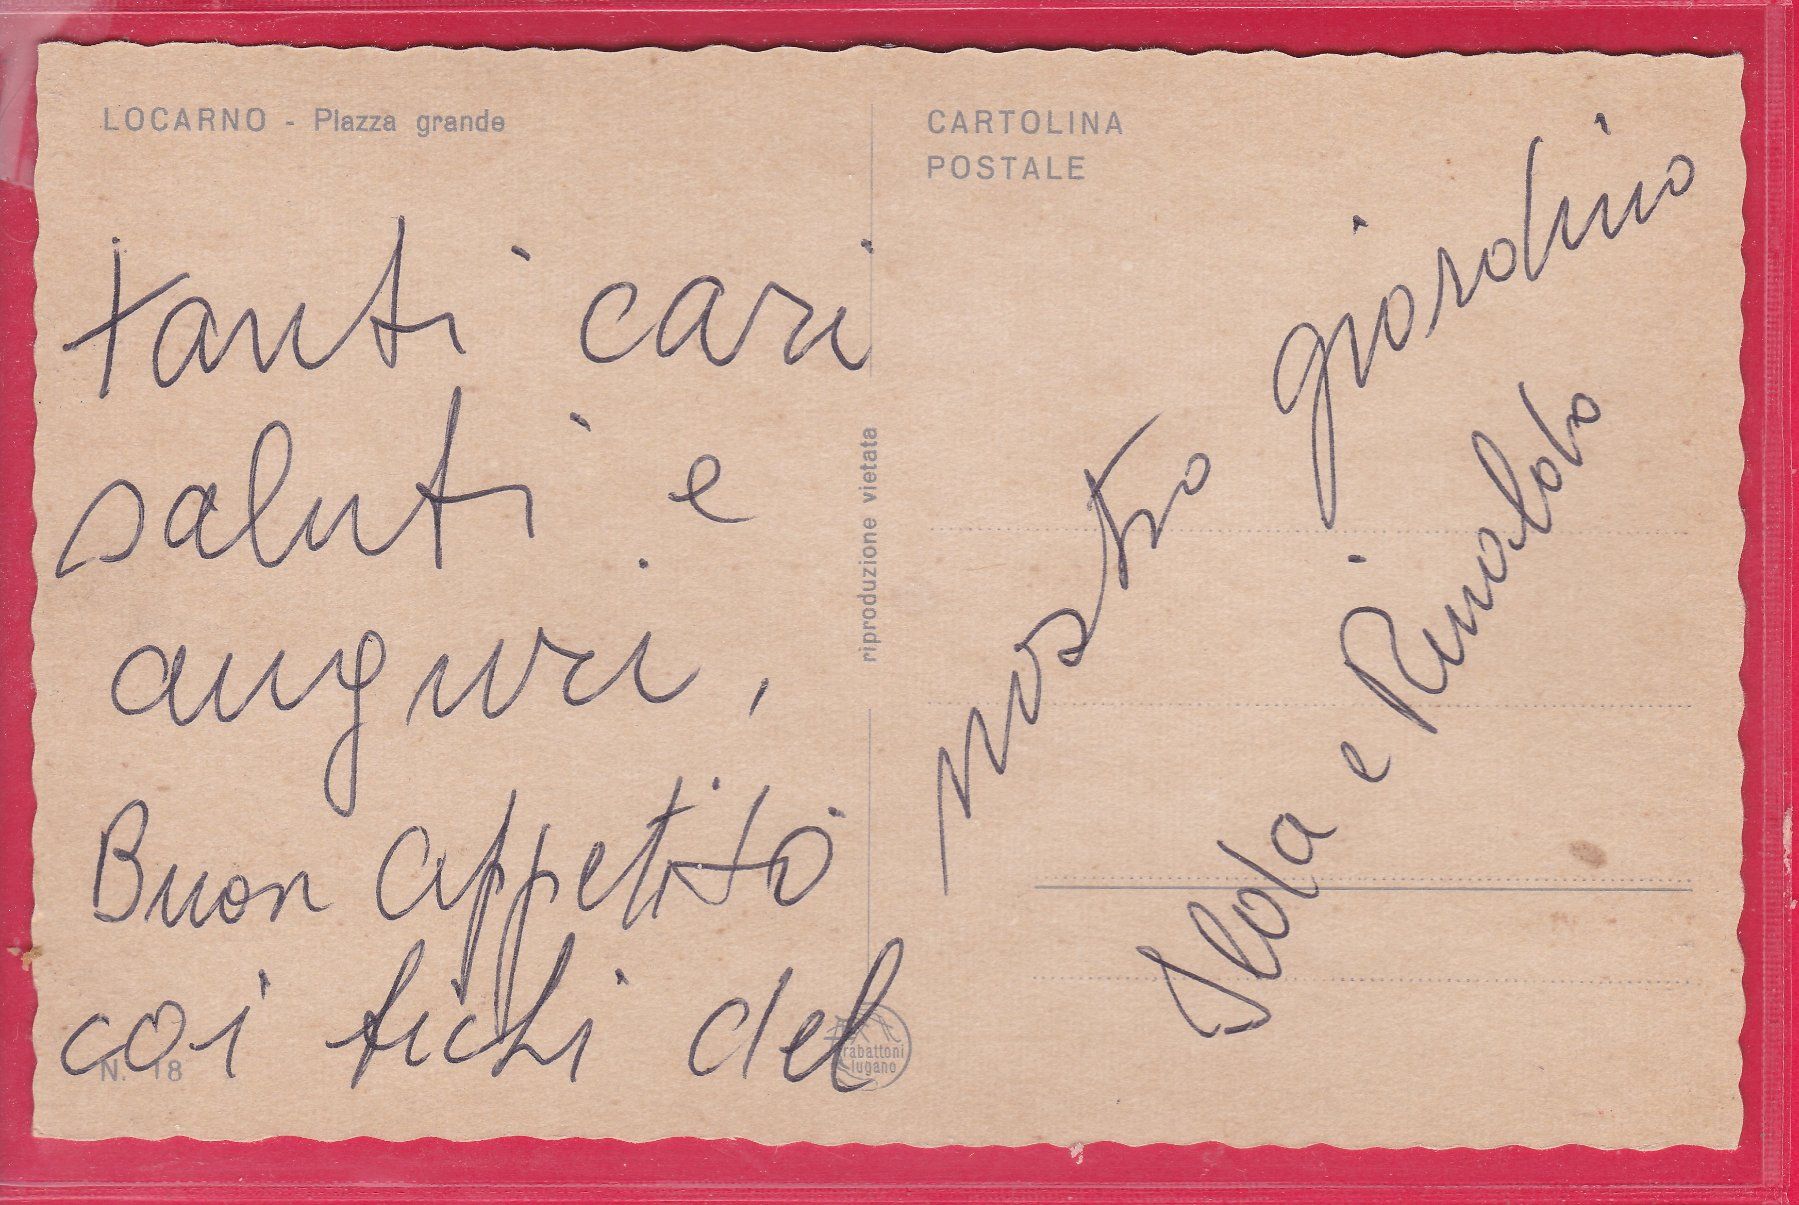 LOCARNO - Piazza grande
CARTOLINA
POSTALE
tanti cari
saluti e
auguri,
Buon appetito
coi fichi del
nostro giardino
Ilda e Rinaldo
riproduzione vietata
N. 18
rabattoni
lugano